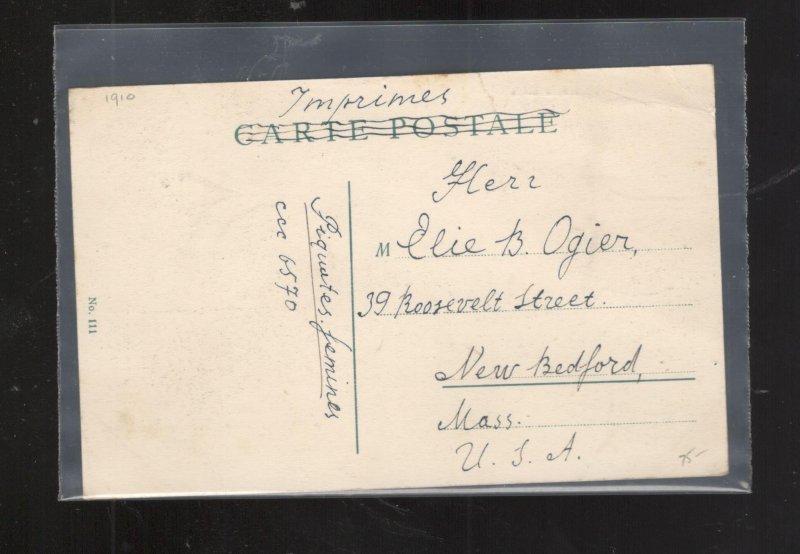 1910
Imprimes
CARTE POSTALE
Herr
M Elie B. Ogier,
39 Roosevelt Street.
New Bedford,
Mass.
U. S. A.
ccc 6570
No. 111
75-